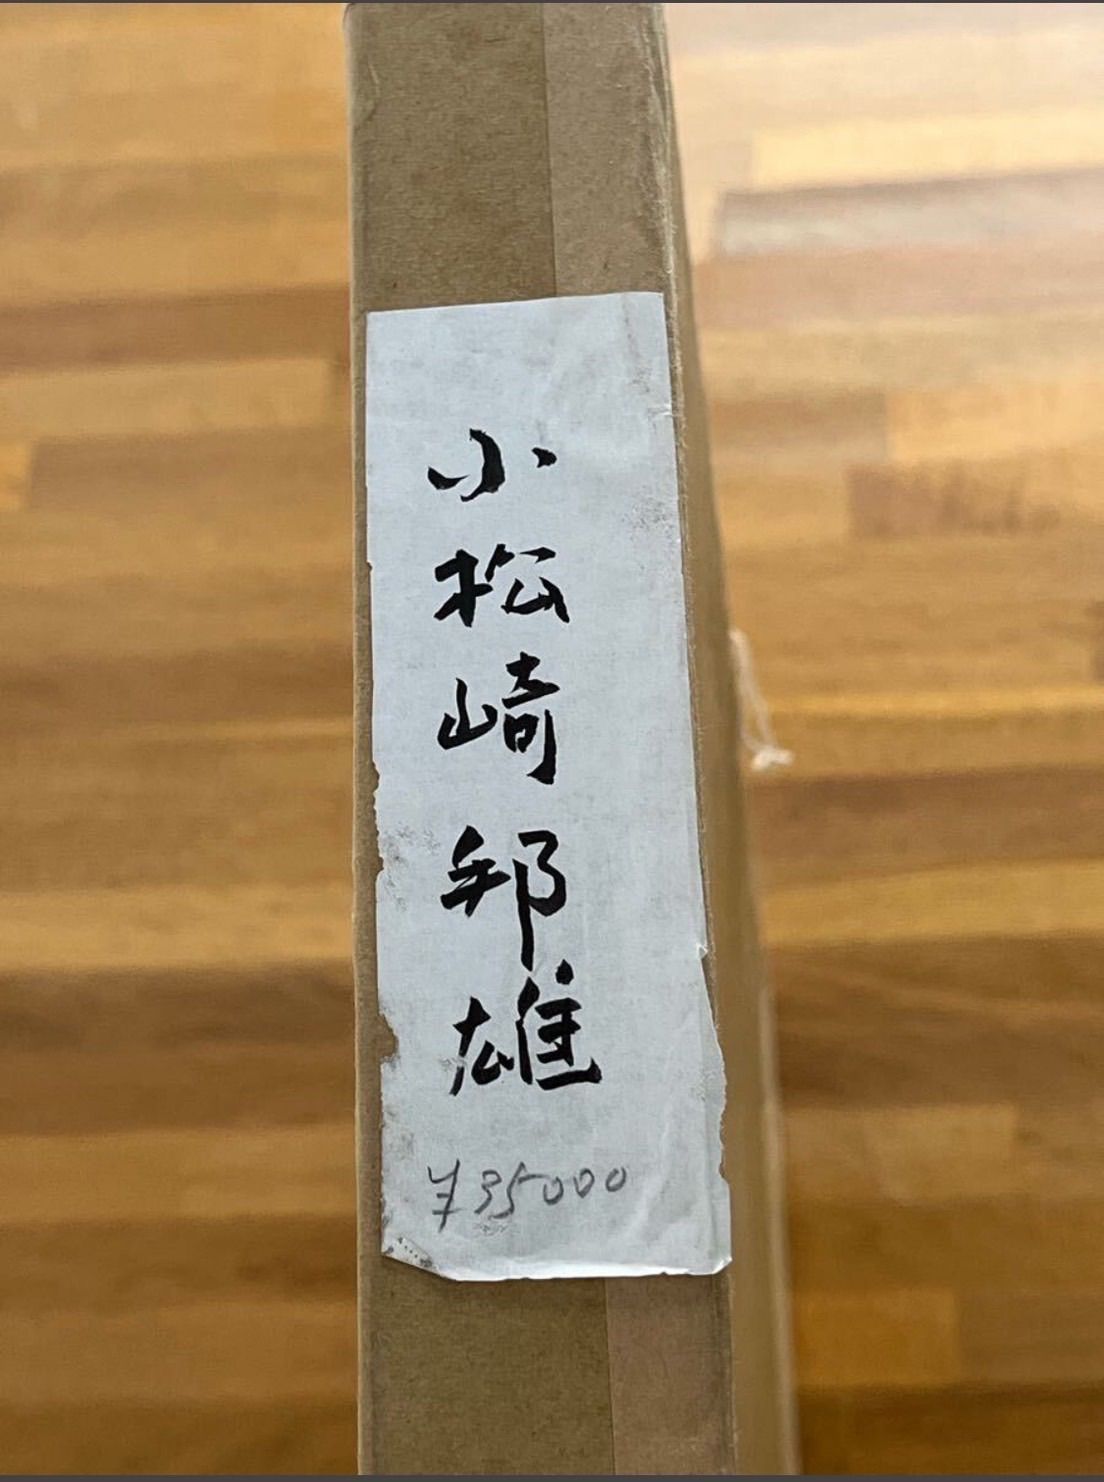 小松崎邦雄
¥35000